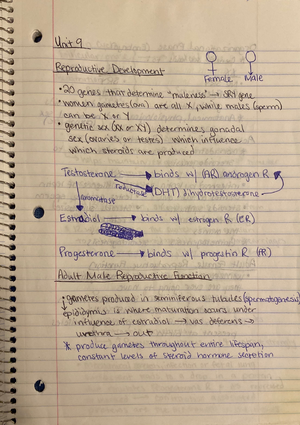 Unit 9
Reproductive Development
Female Male
• 20 genes that determine "maleness" → SRY gene
• women gametes (ova) are all X, while males (sperm)
can be X or Y
• genetic sex (XX or XY) determines gonadal
sex (ovaries or testes) which influence
which steroids are produced
Testosterone → binds w/ (AR) androgen R
reductase (DHT) dihydrotestosterone
aromatase
Estradiol → binds w/ estrogen R (ER)
Progesterone → binds w/ progestin R (PR)
Adult Male Reproductive Function
gametes produced in seminiferous tubules (spermatogenesis)
epididymis is where maturation occurs under
influence of estradiol → vas deferens →
urethra → out
* produce gametes throughout entire lifespan,
constant levels of steroid hormone secretion